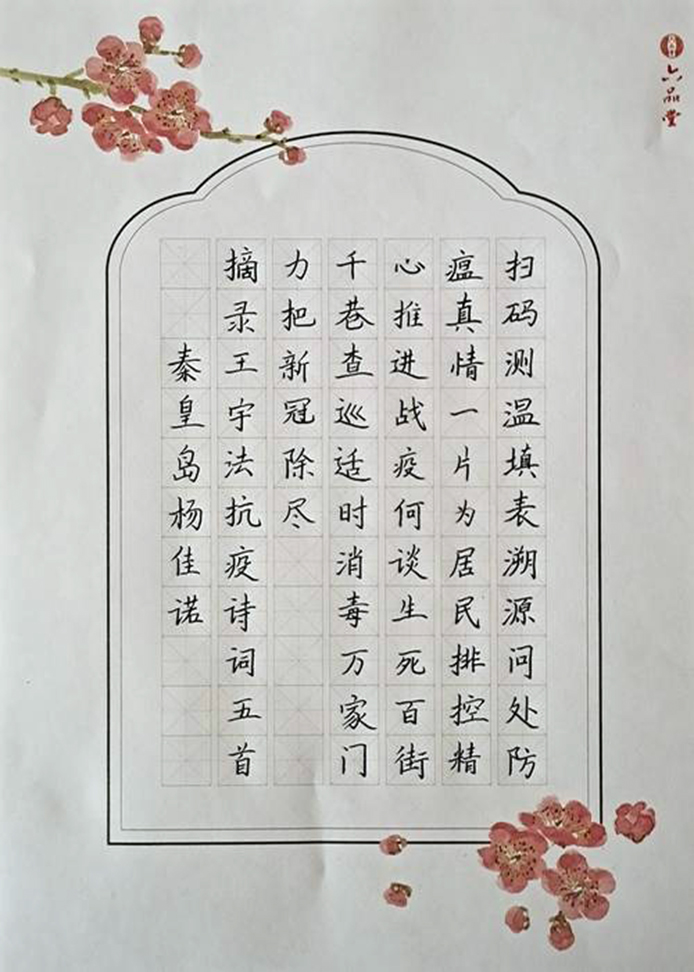 扫码测温填表溯源问处防
瘟真情一片为居民排控精
心推进战疫何谈生死百街
千巷查巡适时消毒万家门
力把新冠除尽
摘录王宇法抗疫诗词五首
秦皇岛杨佳诺
六品堂